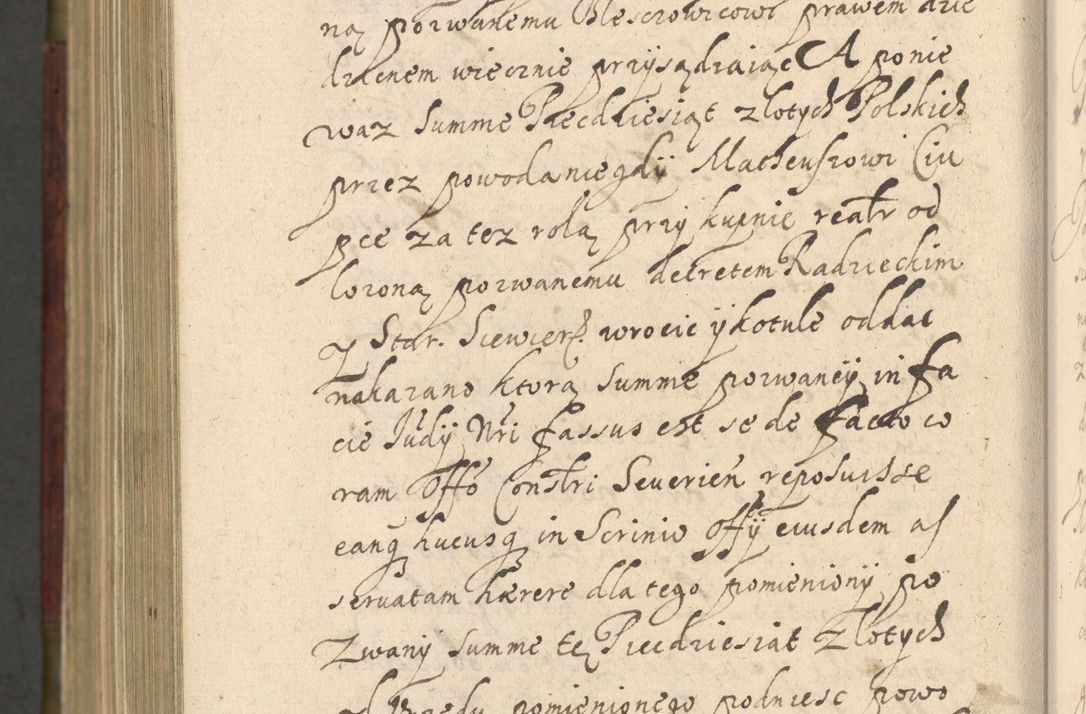 ną pozwanemu prawem dzie
dzicnem wiecznie przysądzaiąc A ponie
waz Summe Piecdziesiąt złotych Polskich
przez powoda niegdÿ Matheuszowi Ciu
pce za tez rolą przy kupnie realr od
lozoną pozwanemu decretem Radzieckim
y Star. Siewier. wrocic ÿ kotule oddac
nakazano ktorą Summe pozwanÿ in fa
cie Judÿ Nri fassus est se de facto co
ram Offo Constri Severien reposuisse
eanq hucusq in Scrinio Offÿ eiusdem as
seruatam hærere dla tego pomienionÿ po
zwanÿ summe tę Piecdziesiat złotych
od Vrzedu pomienionego podniesc powo